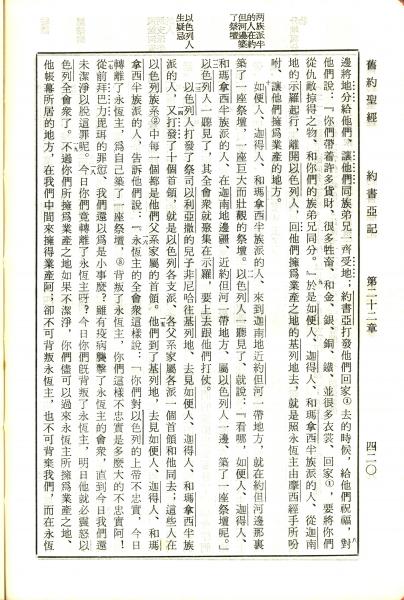 舊約聖經　　約書亞記　　第二十二章　　四二〇
兩族派半
的人在約
但河邊築
了祭壇
以色列人
生疑忌
邊將地分給他們、讓他們同族弟兄一齊受地；約書亞打發他們回家①去的時候，給他們祝福，對
他們說：『你們帶着許多貨財、很多牲畜，和金、銀、銅、鐵、並很多衣裳、回家①，要將你們
從仇敵掠得之物、和你們的族弟兄同分。』於是如便人、迦得人、和瑪拿西半族派的人、從迦南
地的示羅起行，離開以色列人，回他們擁爲業產之地的基列地去，就是照永恆主由摩西經手所吩
咐、讓他們擁爲業產的地方。
如便人、迦得人、和瑪拿西半族派的人、來到迦南地近約但河一帶地方，就在約但河邊那裏
築了一座祭壇，一座巨大而壯觀的祭壇。以色列人一聽見了，就說：『看哪，如便人、迦得人、
和瑪拿西半族派的人、在迦南地邊疆、近約但河一帶地方、屬以色列人一邊、築了一座祭壇呢。』
以色列人一聽見了，其全會衆就聚集在示羅，要上去跟他們打仗。
以色列人打發了祭司以利亞撒的兒子非尼哈往基列地、去見如便人、迦得人、和瑪拿西半族
派的人，又打發了十個首領，就是以色列各支派、各父系家屬各派一個首領和他同去；這些人在
以色列族系②中每一個都是他們父系家屬的首領。他們到了基列地，去見如便人、迦得人、和瑪
拿西半族派的人，告訴他們說：『永恆主的全會衆這樣說：「你們對以色列的上帝不忠實，今日
轉離了永恆主，爲自己築了一座祭壇，③背叛了永恆主，你們這樣不忠實是多麼大的不忠實阿！
從前拜巴力毘珥的罪愆、我們還以爲是小事麼？雖有疫病襲擊了永恆主的會衆，直到今日我們還
未潔淨以脫這罪呢。今日你們竟轉離了永恆主呀？今日你們既背叛了永恆主，明日他就必震怒以
色列全會衆了。不過你們所擁爲業產之地如果不潔淨，你們儘可以過來永恆主所擁爲業產之地、
他帳幕所居的地方，在我們中間來擁得業產阿；卻不可背叛永恆主，也不可背棄我們，而在永恆